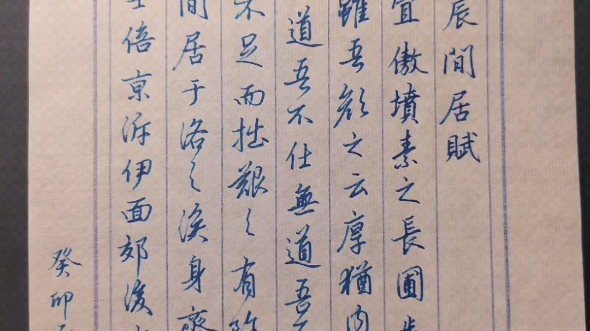 辰閒居賦
宜傲墳素之長圃步
雖吾顏之云厚猶内
道吾不仕無道吾
不足而拙艱之有餘
間居于洛之涘身齊
倍京泝伊面郊後
癸卯